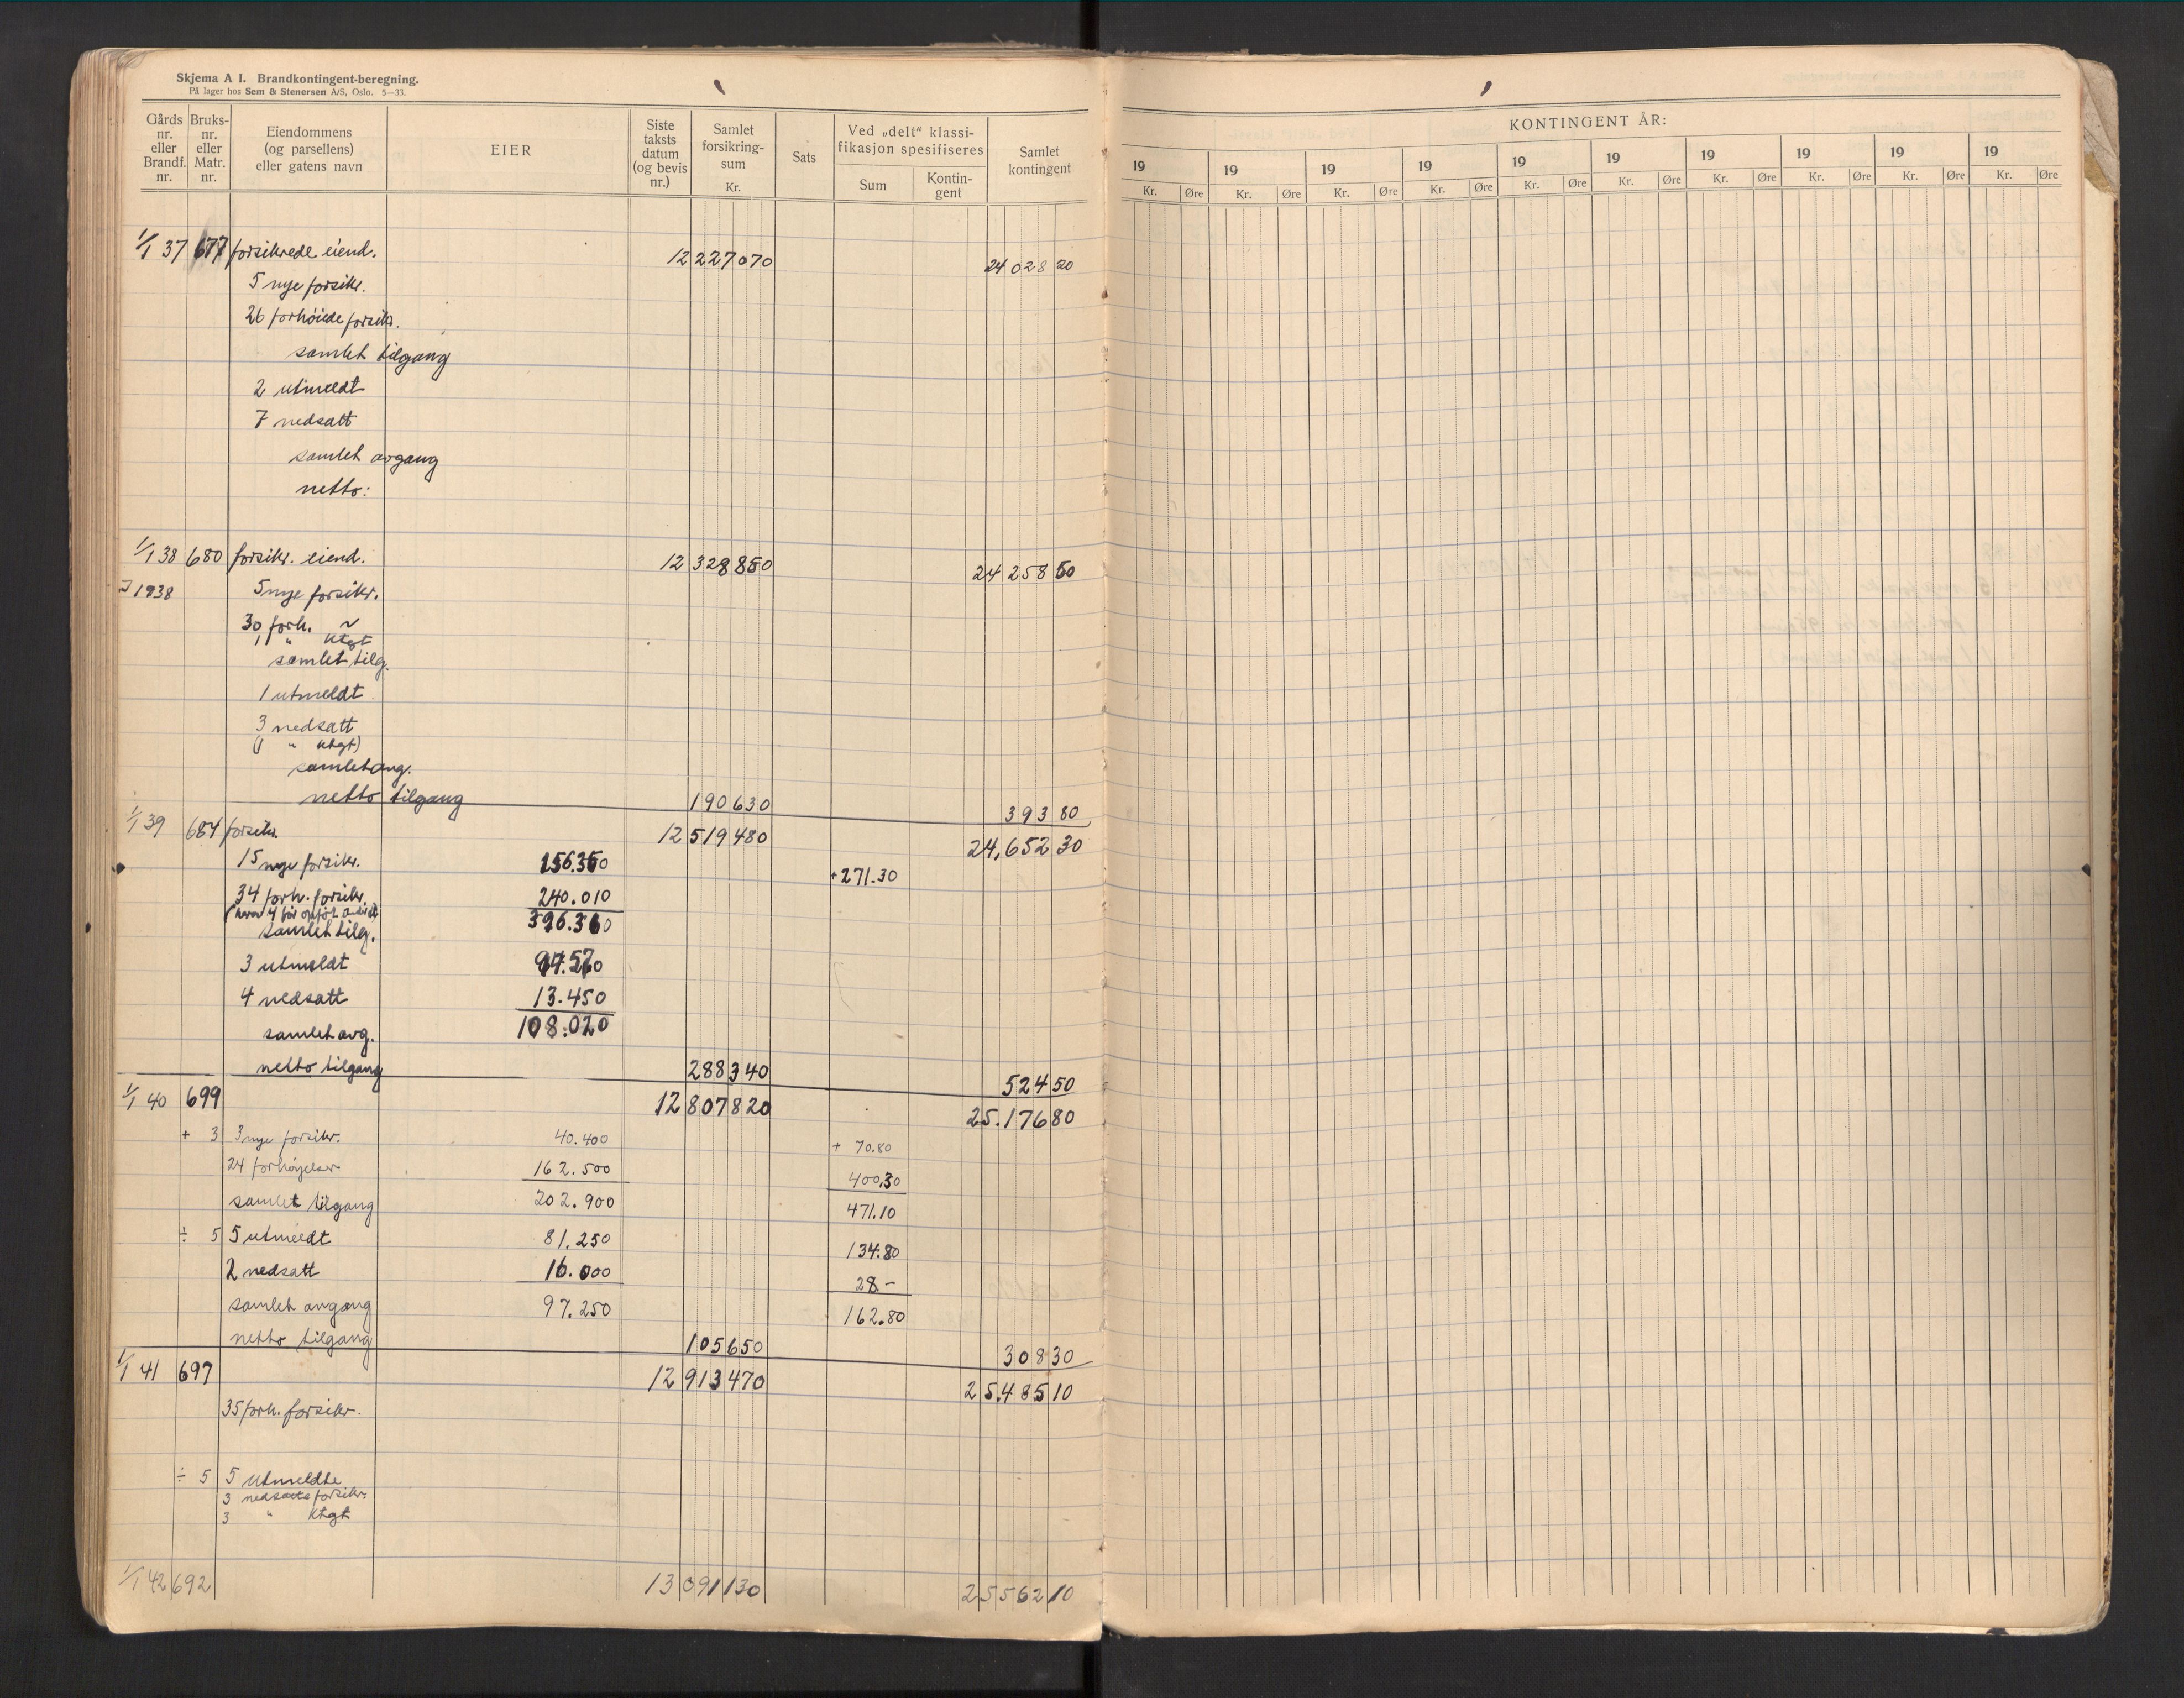 Skjema A I. Brandkontingent-beregning.
På lager hos Sem & Stenersen A/S, Oslo. 5—33.
Gårds nr. eller Brandf. nr.
Bruks- nr. eller Matr. nr.
Eiendommens (og parsellens) eller gatens navn
EIER
Siste taksts datum (og bevis nr.)
Samlet forsikring- sum Kr.
Sats
Ved „delt“ klassi- fikasjon spesifiseres
Sum
Kontin- gent
Samlet kontingent
KONTINGENT ÅR:
19 19 19 19 19 19 19 19 19 19
Kr. Øre Kr. Øre Kr. Øre Kr. Øre Kr. Øre Kr. Øre Kr. Øre Kr. Øre Kr. Øre Kr. Øre
1/1 37 677 forsikrede eiend. 12 227070 24 028 20
5 nye forsikr.
26 forhöiede forsikr.
samlet tilgang
2 utmeldt
7 nedsatt
samlet avgang
netto:
1/1 38 680 forsikr. eiend. 12 328850 24 258 50
I 1938 5 nye forsikr.
30 forh. ~
1 " ktgt
samlet tilg.
1 utmeldt
3 nedsatt
(1 " ktgt)
samlet avg.
netto tilgang 190630 393 80
1/1 39 684 forsikr. 12 519480 24,652 30
15 nye forsikr. 156.350 +271.30
34 forh. forsikr. 240.010
samlet tilg. 396.360
3 utmeldt 94.570
4 nedsatt 13.450
samlet avg. 108.020
netto tilgang 288340 524 50
1/1 40 699 12 807820 25.176 80
+ 3 3 nye forsikr. 40.400 + 70.80
24 forhöyelser 162.500 400.30
samlet tilgang 202.900 471.10
÷ 5 5 utmeldt 81.250 134.80
2 nedsatt 16.000 28.-
samlet avgang 97.250 162.80
netto tilgang 105650 308 30
1/1 41 697 12 913470 25.485 10
35 forh. forsikr.
÷ 5 5 utmeldte
3 nedsatte forsikr.
3 " ktgt
1/1 42 692 13 091130 25562 10